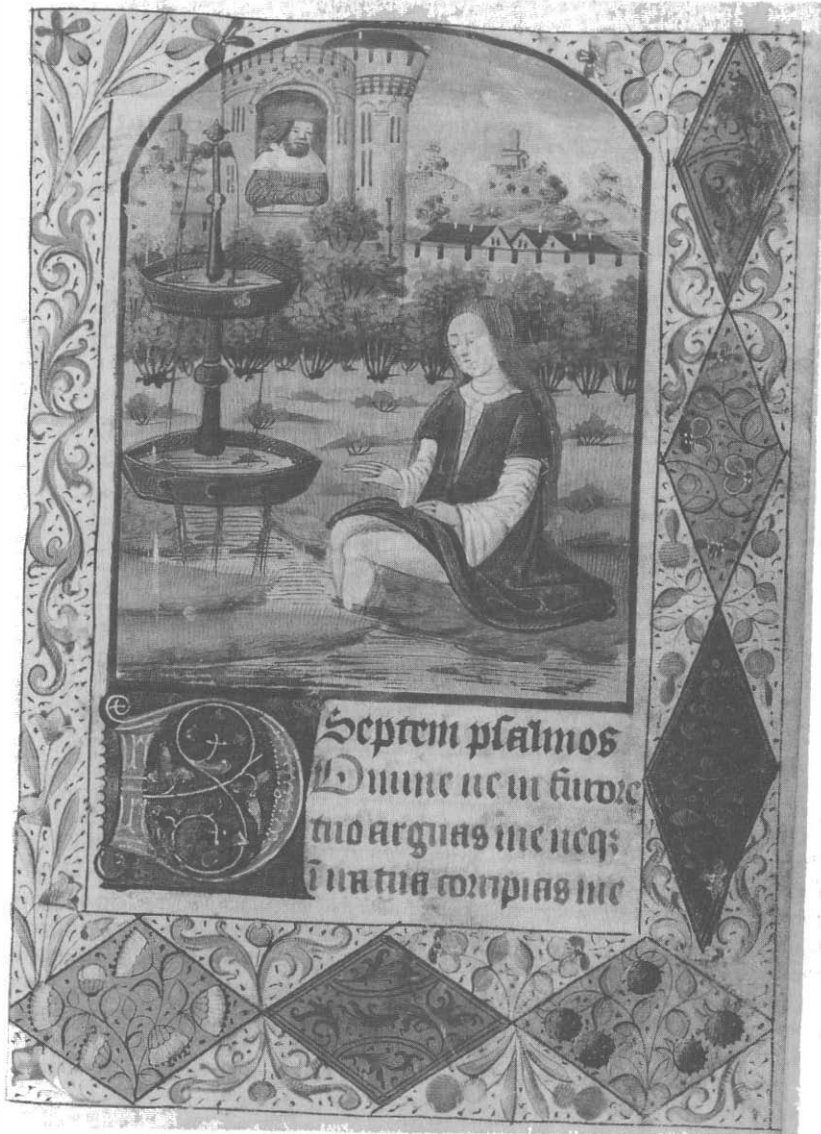 Septem psalmos
Domine ne in furore
tuo arguas me neq;
ī ira tua corripias me